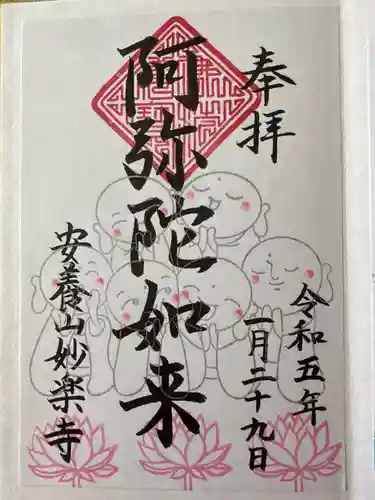 奉拝
令和五年
一月二十九日
阿弥陀如来
安養山妙楽寺